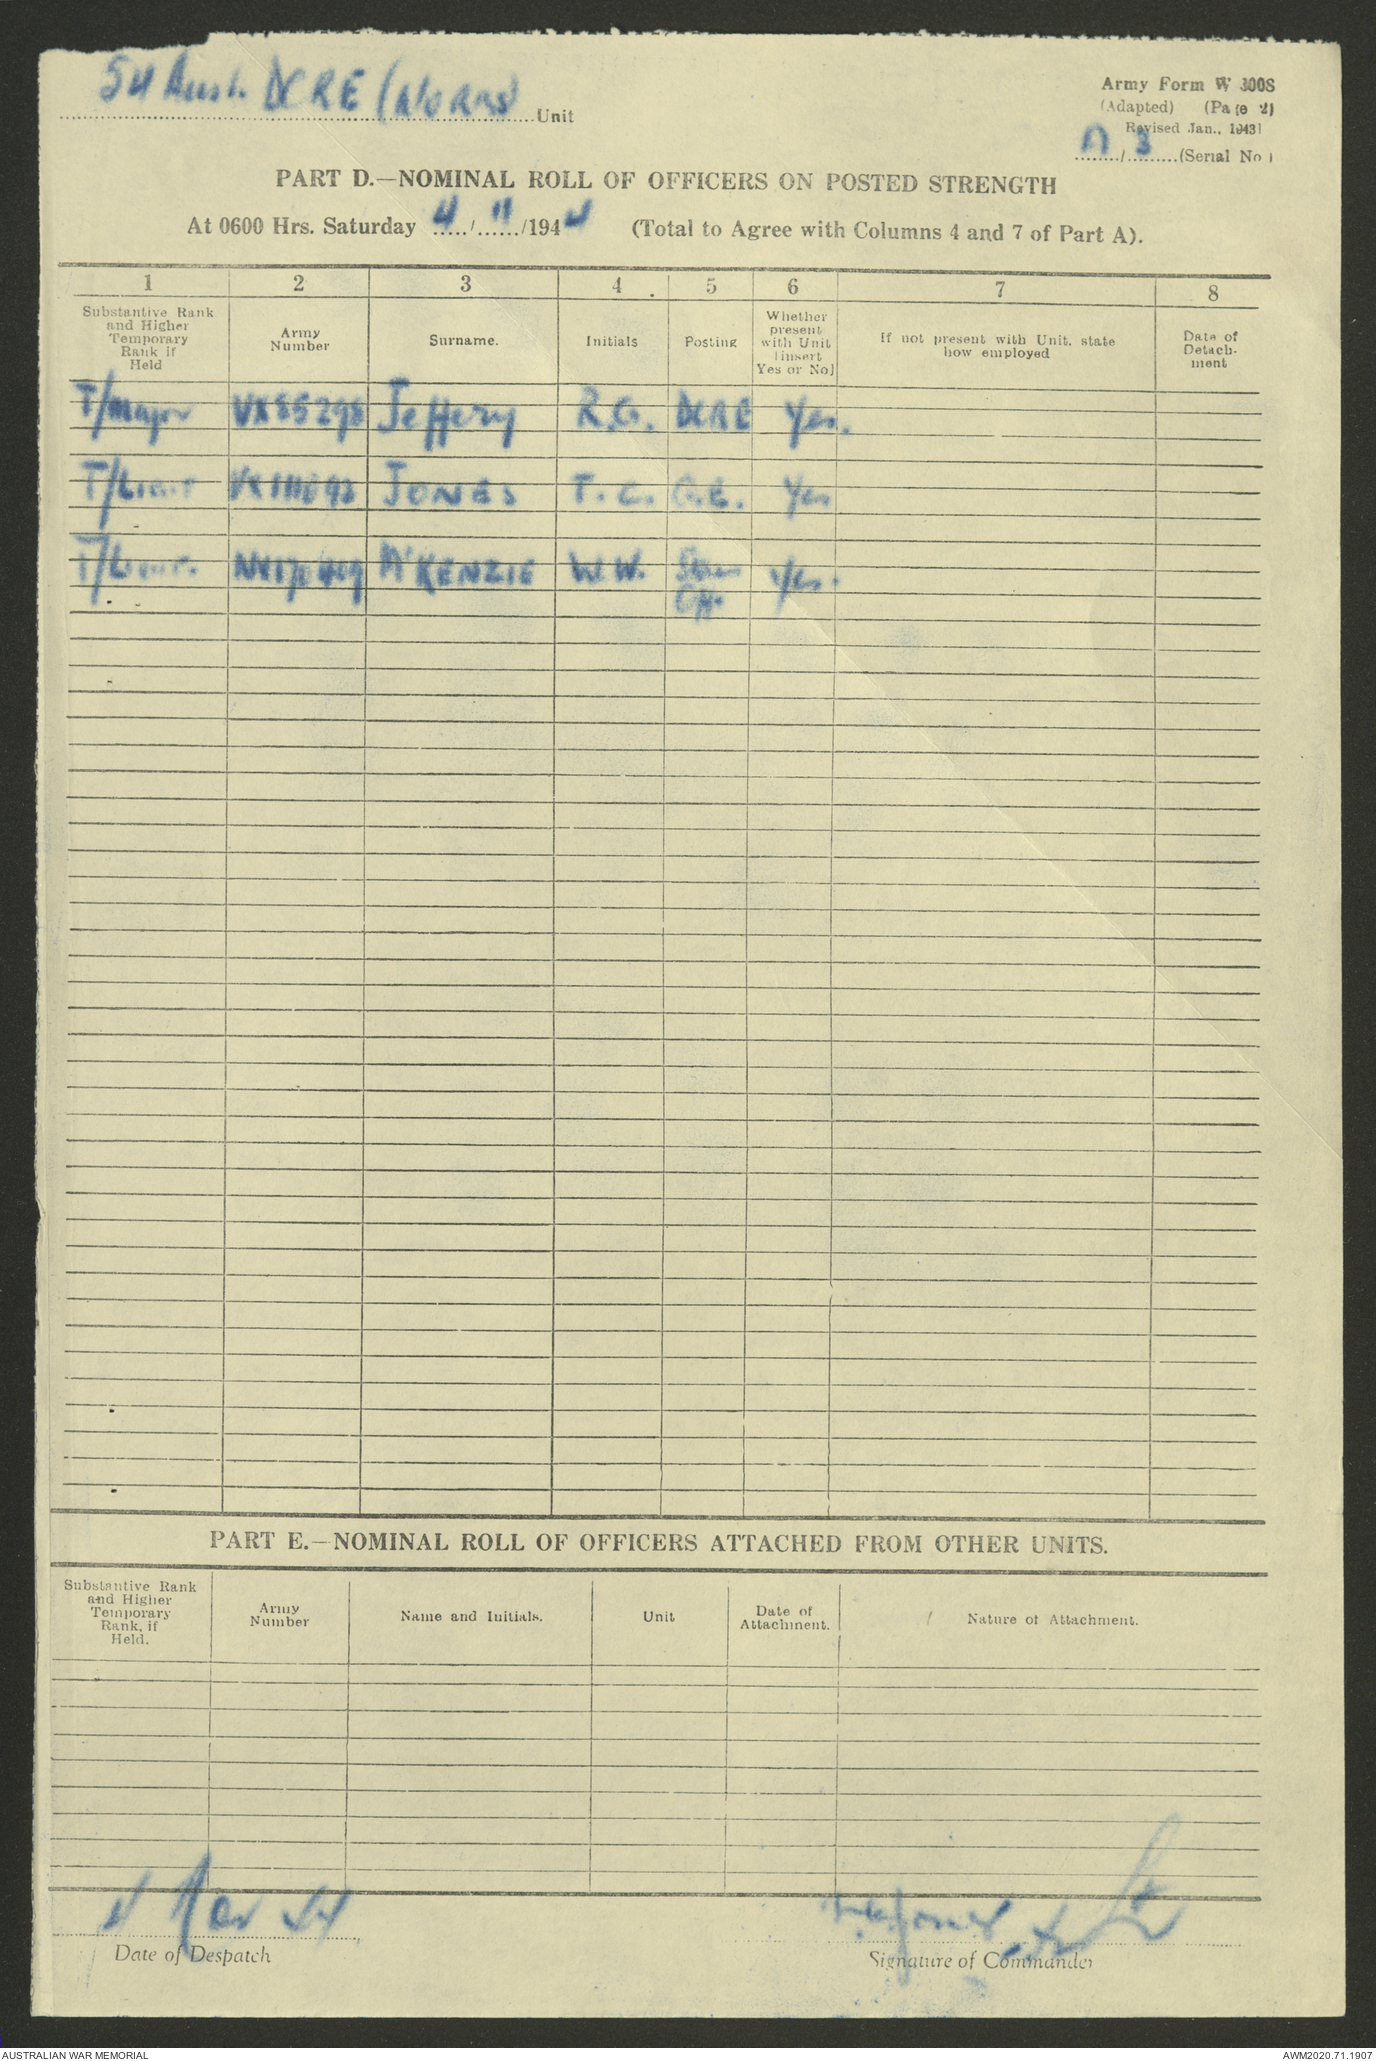 54 Aust. DCRE (Works) Unit
Army Form W 3008
(Adapted) (Page 2)
Revised Jan., 1943)
/ 3 (Serial No)
PART D.—NOMINAL ROLL OF OFFICERS ON POSTED STRENGTH
At 0600 Hrs. Saturday 4/11/1944 (Total to Agree with Columns 4 and 7 of Part A).
1 2 3 4 5 6 7 8
Substantive Rank and Higher Temporary Rank if Held
Army Number
Surname.
Initials
Posting
Whether present with Unit [insert Yes or No]
If not present with Unit, state how employed
Date of Detachment
T/Major VX85298 Jeffery R.G. DCRE Yes.
T/Lieut JONES T.C. G.E. Yes
T/Lieut. NX170409 McKENZIE W.W. Off. Yes.
PART E.—NOMINAL ROLL OF OFFICERS ATTACHED FROM OTHER UNITS.
Substantive Rank and Higher Temporary Rank, if Held.
Army Number
Name and Initials.
Unit
Date of Attachment.
Nature of Attachment.
4 Nov 44
Date of Despatch
Jones Lt
Signature of Commander
AUSTRALIAN WAR MEMORIAL
AWM2020.71.1907